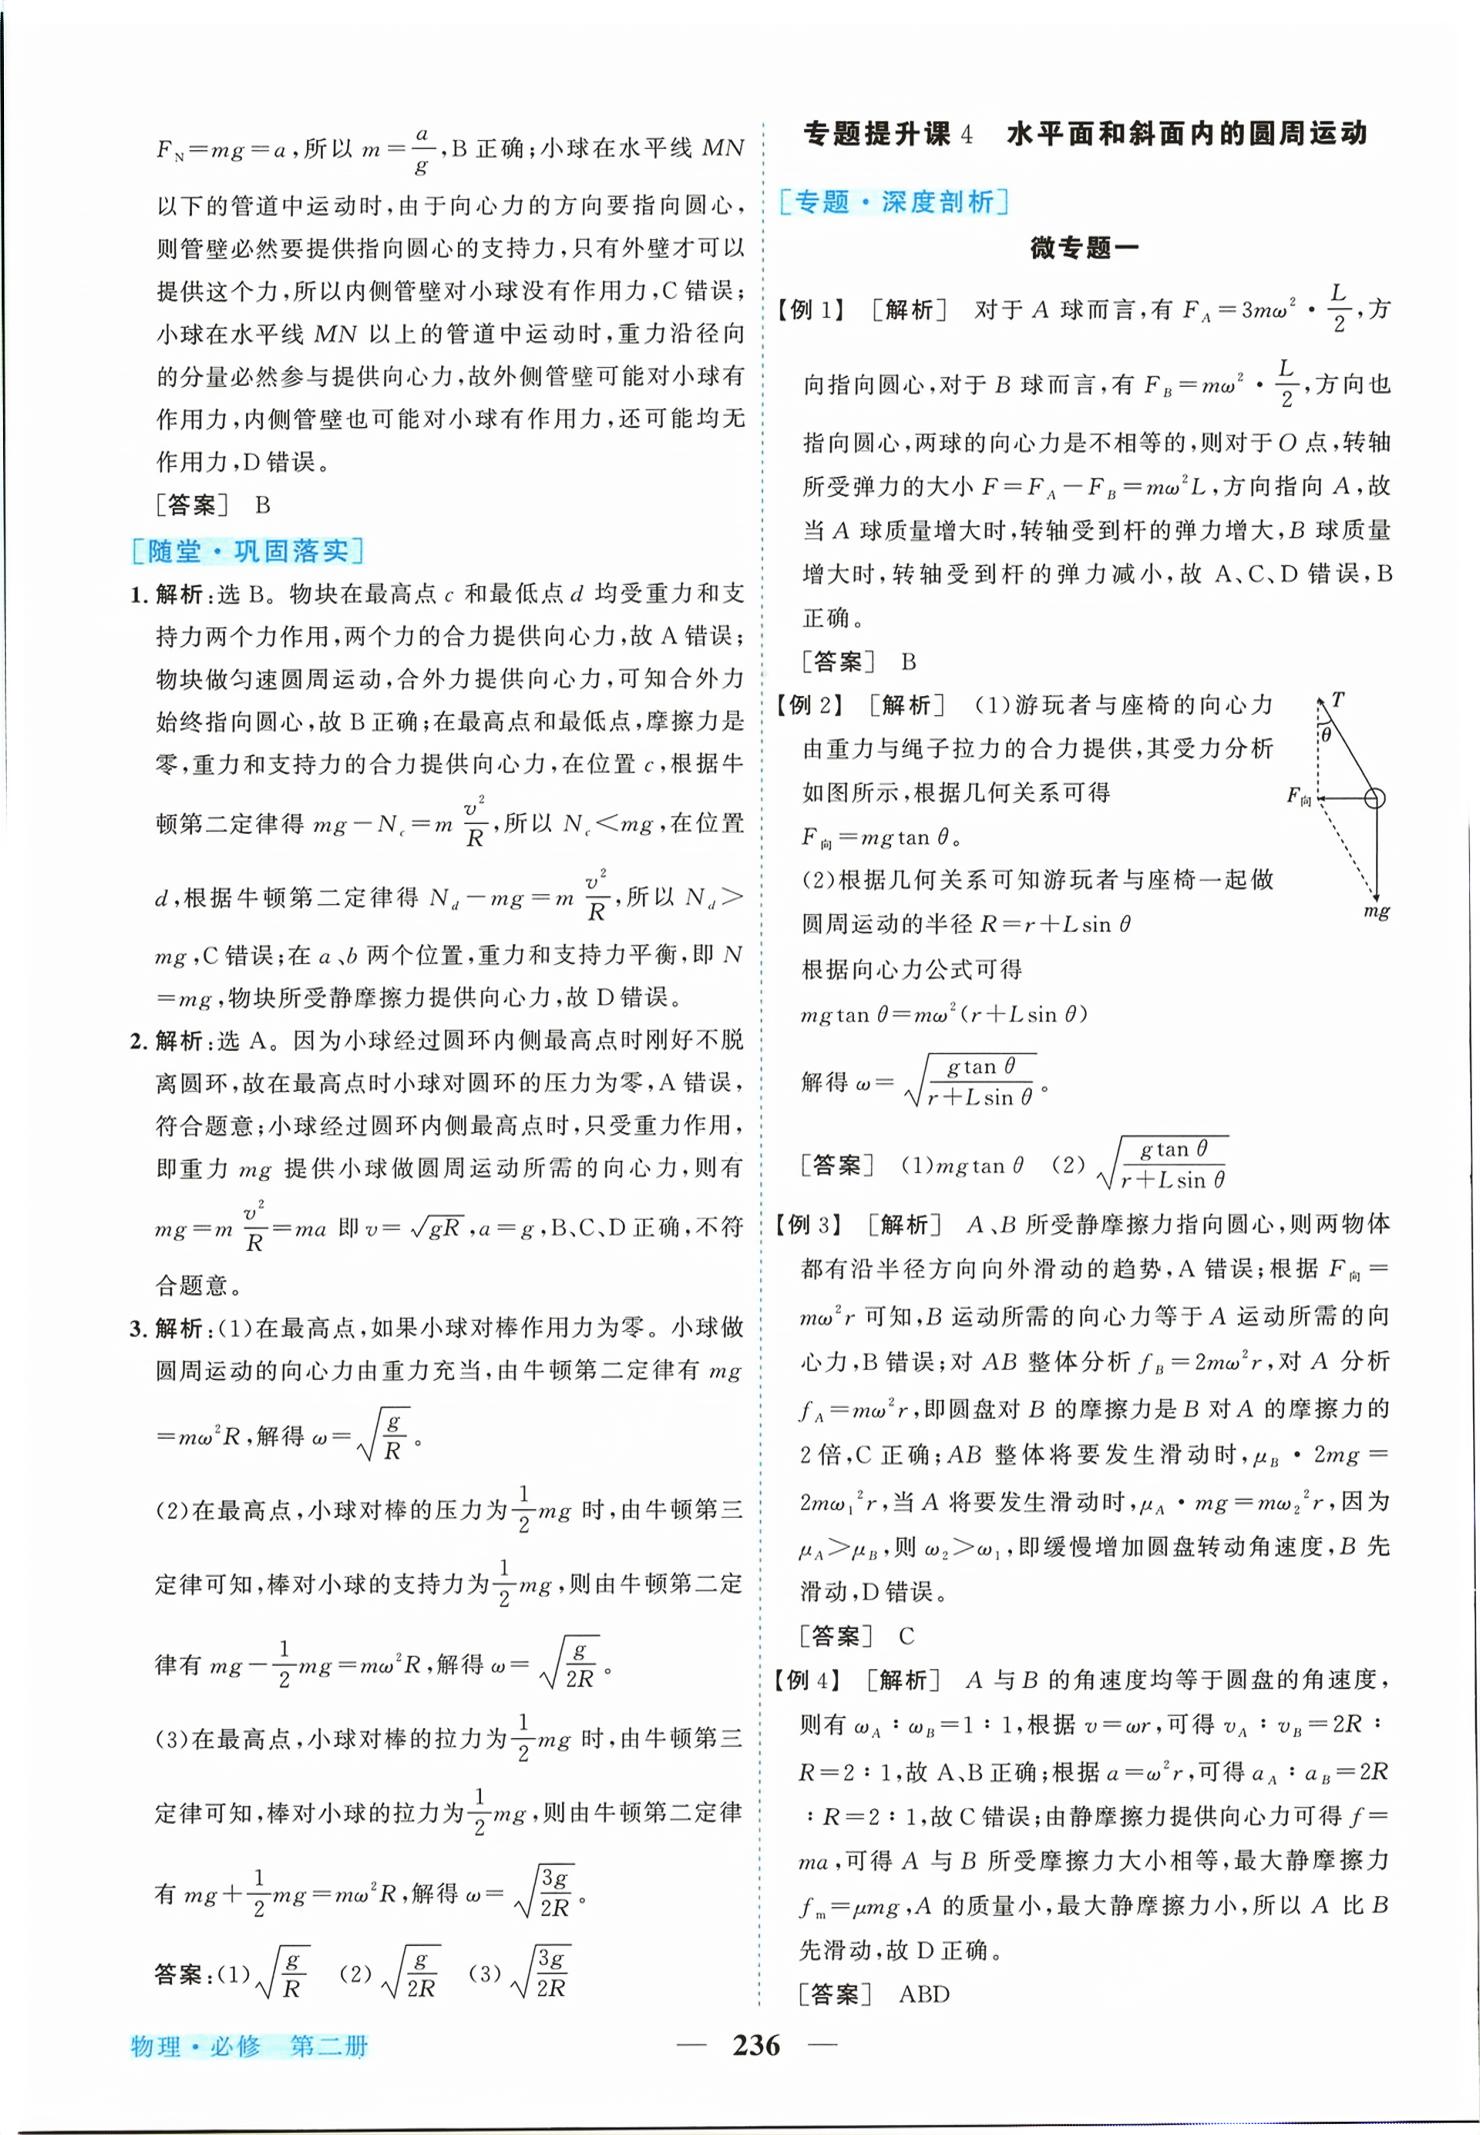 F_N=mg=a,所以 m=a/g,B 正确;小球在水平线 MN
以下的管道中运动时,由于向心力的方向要指向圆心,
则管壁必然要提供指向圆心的支持力,只有外壁才可以
提供这个力,所以内侧管壁对小球没有作用力,C 错误;
小球在水平线 MN 以上的管道中运动时,重力沿径向
的分量必然参与提供向心力,故外侧管壁可能对小球有
作用力,内侧管壁也可能对小球有作用力,还可能均无
作用力,D 错误。
[答案] B
[随堂·巩固落实]
1. 解析:选 B。物块在最高点 c 和最低点 d 均受重力和支
持力两个力作用,两个力的合力提供向心力,故 A 错误;
物块做匀速圆周运动,合外力提供向心力,可知合外力
始终指向圆心,故 B 正确;在最高点和最低点,摩擦力是
零,重力和支持力的合力提供向心力,在位置 c,根据牛
顿第二定律得 mg-N_c=m v²/R,所以 N_c<mg,在位置
d,根据牛顿第二定律得 N_d-mg=m v²/R,所以 N_d>
mg,C 错误;在 a、b 两个位置,重力和支持力平衡,即 N
=mg,物块所受静摩擦力提供向心力,故 D 错误。
2. 解析:选 A。因为小球经过圆环内侧最高点时刚好不脱
离圆环,故在最高点时小球对圆环的压力为零,A 错误,
符合题意;小球经过圆环内侧最高点时,只受重力作用,
即重力 mg 提供小球做圆周运动所需的向心力,则有
mg=m v²/R=ma 即 v=√(gR),a=g,B、C、D 正确,不符
合题意。
3. 解析:(1)在最高点,如果小球对棒作用力为零。小球做
圆周运动的向心力由重力充当,由牛顿第二定律有 mg
=mω²R,解得 ω=√(g/R)。
(2)在最高点,小球对棒的压力为1/2mg 时,由牛顿第三
定律可知,棒对小球的支持力为1/2mg,则由牛顿第二定
律有 mg-1/2mg=mω²R,解得 ω=√(g/2R)。
(3)在最高点,小球对棒的拉力为1/2mg 时,由牛顿第三
定律可知,棒对小球的拉力为1/2mg,则由牛顿第二定律
有 mg+1/2mg=mω²R,解得 ω=√(3g/2R)。
答案:(1)√(g/R) (2)√(g/2R) (3)√(3g/2R)
专题提升课 4 水平面和斜面内的圆周运动
[专题·深度剖析]
微专题一
【例 1】 [解析] 对于 A 球而言,有 F_A=3mω²·L/2,方
向指向圆心,对于 B 球而言,有 F_B=mω²·L/2,方向也
指向圆心,两球的向心力是不相等的,则对于 O 点,转轴
所受弹力的大小 F=F_A-F_B=mω²L,方向指向 A,故
当 A 球质量增大时,转轴受到杆的弹力增大,B 球质量
增大时,转轴受到杆的弹力减小,故 A、C、D 错误,B
正确。
[答案] B
【例 2】 [解析] (1)游玩者与座椅的向心力
由重力与绳子拉力的合力提供,其受力分析
如图所示,根据几何关系可得
F_向=mgtan θ。
(2)根据几何关系可知游玩者与座椅一起做
圆周运动的半径 R=r+Lsin θ
根据向心力公式可得
mgtan θ=mω²(r+Lsin θ)
解得 ω=√(gtan θ/(r+Lsin θ))。
[答案] (1)mgtan θ (2)√(gtan θ/(r+Lsin θ))
T
θ
F_向
mg
【例 3】 [解析] A、B 所受静摩擦力指向圆心,则两物体
都有沿半径方向向外滑动的趋势,A 错误;根据 F_向=
mω²r 可知,B 运动所需的向心力等于 A 运动所需的向
心力,B 错误;对 AB 整体分析 f_B=2mω²r,对 A 分析
f_A=mω²r,即圆盘对 B 的摩擦力是 B 对 A 的摩擦力的
2 倍,C 正确;AB 整体将要发生滑动时,μ_B·2mg=
2mω₁²r,当 A 将要发生滑动时,μ_A·mg=mω₂²r,因为
μ_A>μ_B,则 ω₂>ω₁,即缓慢增加圆盘转动角速度,B 先
滑动,D 错误。
[答案] C
【例 4】 [解析] A 与 B 的角速度均等于圆盘的角速度,
则有 ω_A∶ω_B=1∶1,根据 v=ωr,可得 v_A∶v_B=2R∶
R=2∶1,故 A、B 正确;根据 a=ω²r,可得 a_A∶a_B=2R
∶R=2∶1,故 C 错误;由静摩擦力提供向心力可得 f=
ma,可得 A 与 B 所受摩擦力大小相等,最大静摩擦力
f_m=μmg,A 的质量小,最大静摩擦力小,所以 A 比 B
先滑动,故 D 正确。
[答案] ABD
物理·必修 第二册
— 236 —